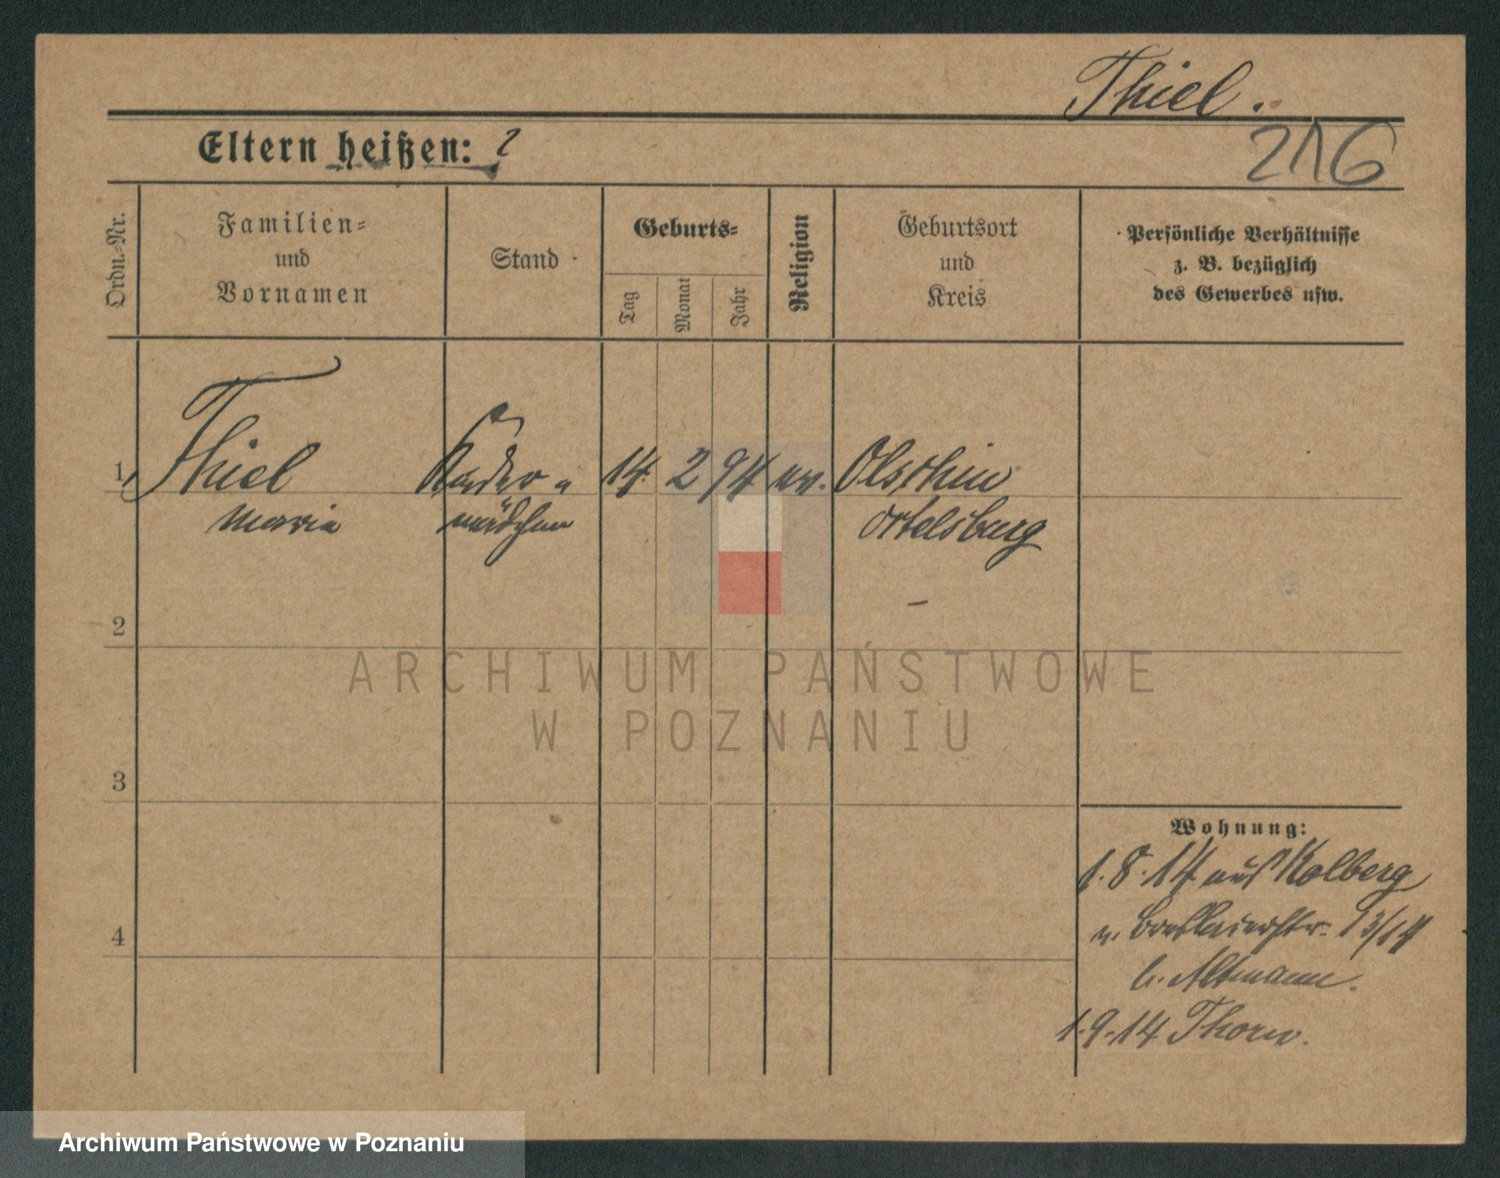 Thiel.
216
Eltern heißen: ?
Ordn.-Nr.
Familien-
und
Vornamen
Stand
Geburts-
Tag
Monat
Jahr
Religion
Geburtsort
und
Kreis
Persönliche Verhältnisse
z. B. bezüglich
des Gewerbes usw.
1, Thiel
Marie
Kinder-
mädchen
14. 2 94
Ortelsburg
2
3
4
Wohnung:
1.8.14 aus Kolberg
n. Breslauerstr. 13/14
b. Altmann.
1.9.14 Thorn.
ARCHIWUM PAŃSTWOWE
W POZNANIU
Archiwum Państwowe w Poznaniu